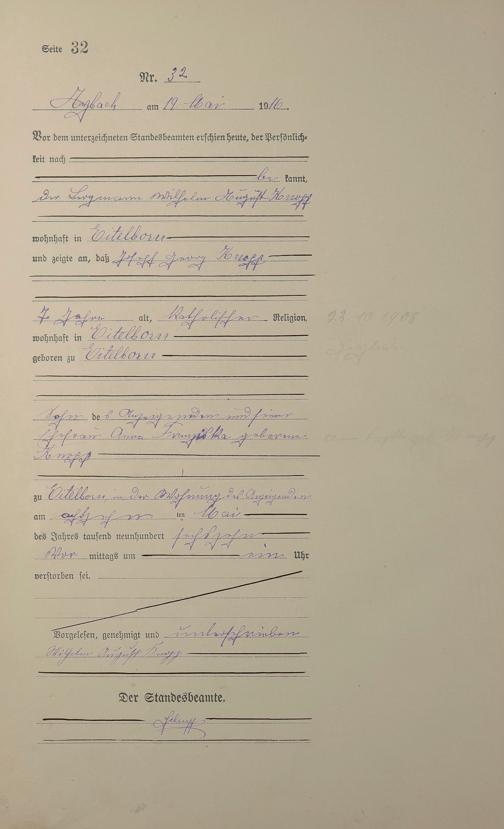 Seite 32
Nr. 32
Arzbach am 19 Mai 1916.
Vor dem unterzeichneten Standesbeamten erschien heute, der Persönlich-
keit nach
be kannt,
der Bergmann Wilhelm August Knopp
wohnhaft in Eitelborn
und zeigte an, daß Josef Georg Knopp
7 Jahre alt, katholischer Religion,
wohnhaft in Eitelborn
geboren zu Eitelborn
22.10.1908
Sohn des Anzeigenden und seiner
Ehefrau Anna Franziska geborene
Knopp
zu Eitelborn in der Wohnung des Anzeigenden
am achtzehn ten Mai
des Jahres tausend neunhundert sechszehn
Vor mittags um ein Uhr
verstorben sei.
Vorgelesen, genehmigt und unterschrieben
Wilhelm August Knopp
Der Standesbeamte.